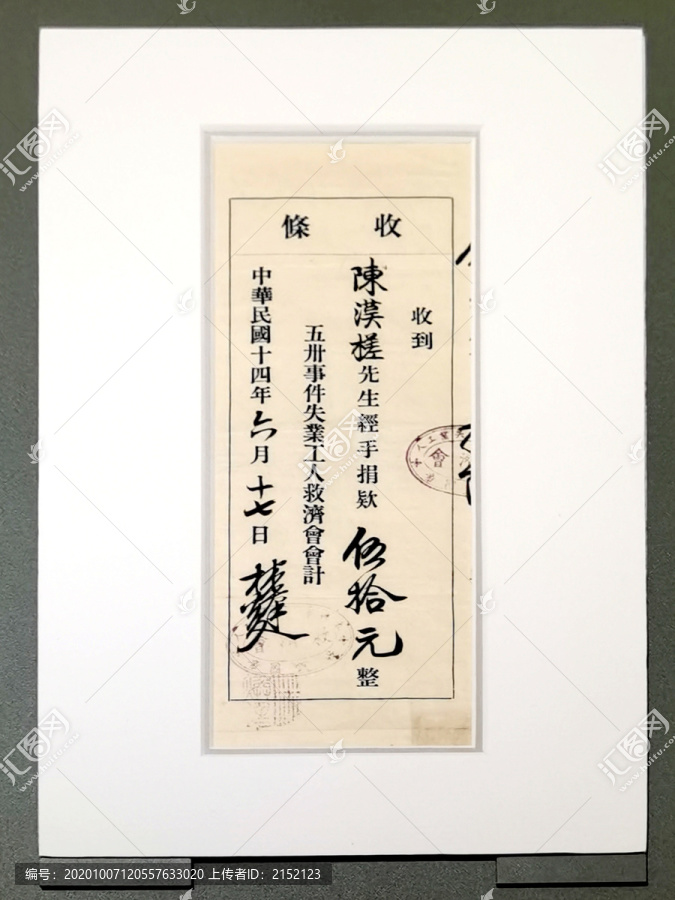 收條
收到
陳漠槎先生經手捐欵伍拾元整
五卅事件失業工人救濟會會計
中華民國十四年六月十七日
汇图网
www.huitu.com
编号：20201007120557633020 上传者ID：2152123